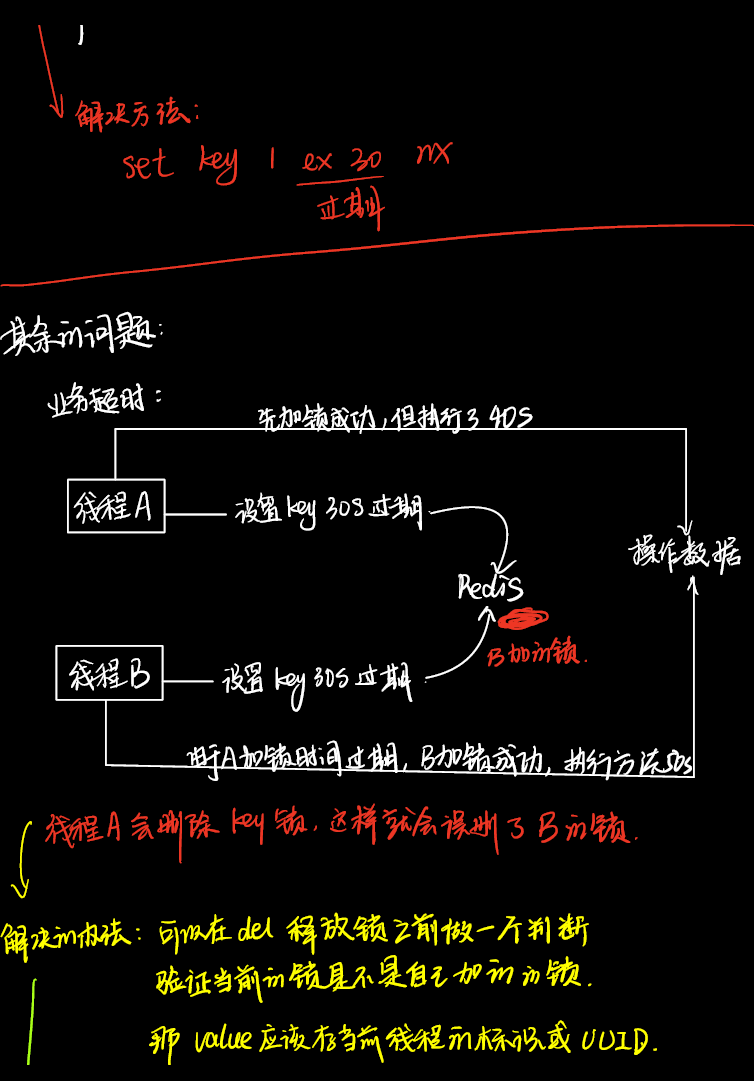 解决方法:
set key 1 ex 30 nx
过期
其余的问题:
业务超时:
先加锁成功,但执行了40S
线程A
设置key 30S过期
操作数据
Redis
B加的锁.
线程B
设置key 30S过期.
由于A加锁时间过期,B加锁成功,执行方法50s
线程A会删除key锁,这样就会误删了B的锁.
解决的办法:可以在del释放锁之前做一个判断
验证当前的锁是不是自己加的的锁.
那value应该存当前线程的标识或UUID.